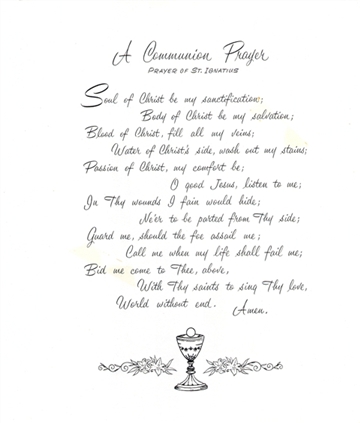 A Communion Prayer
PRAYER OF ST. IGNATIUS
Soul of Christ be my sanctification;
Body of Christ be my salvation;
Blood of Christ, fill all my veins;
Water of Christ's side, wash out my stains;
Passion of Christ, my comfort be;
O good Jesus, listen to me;
In Thy wounds I fain would hide;
Ne'er to be parted from Thy side;
Guard me, should the foe assail me;
Call me when my life shall fail me;
Bid me come to Thee, above,
With Thy saints to sing Thy love,
World without end.
Amen.